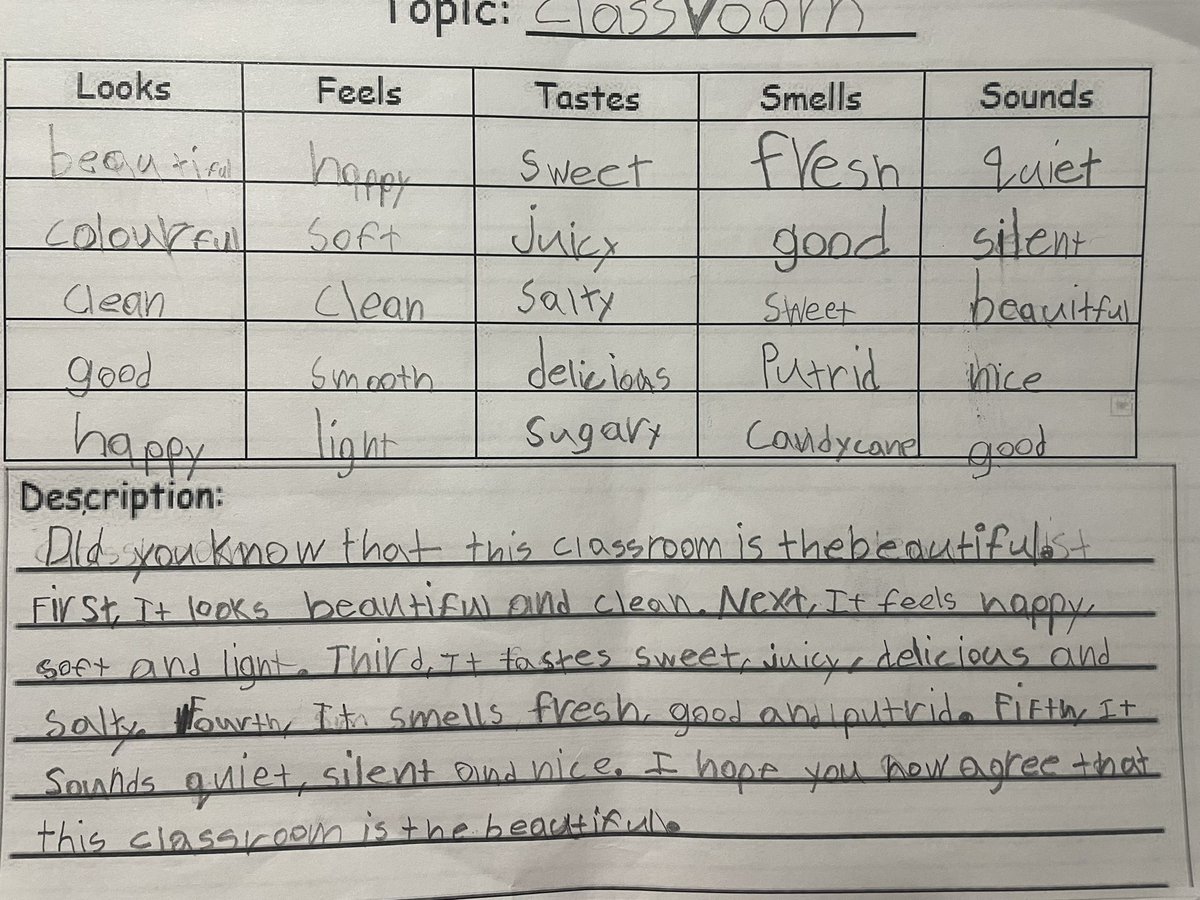 Topic: classroom
Looks Feels Tastes Smells Sounds
beautiful happy sweet fresh quiet
colourful soft juicy good silent
clean clean salty sweet beauitful
good smooth delicious Putrid nice
happy light sugary Candycane good
Description:
Did you know that this classroom is the beautiful.st
First, It looks beautiful and clean. Next, It feels happy,
soft and light. Third, It tastes sweet, juicy, delicious and
salty. Fourth, It smells fresh, good and putrid. Fifth, It
Sounds quiet, silent and nice. I hope you now agree that
this classroom is the beautiful.